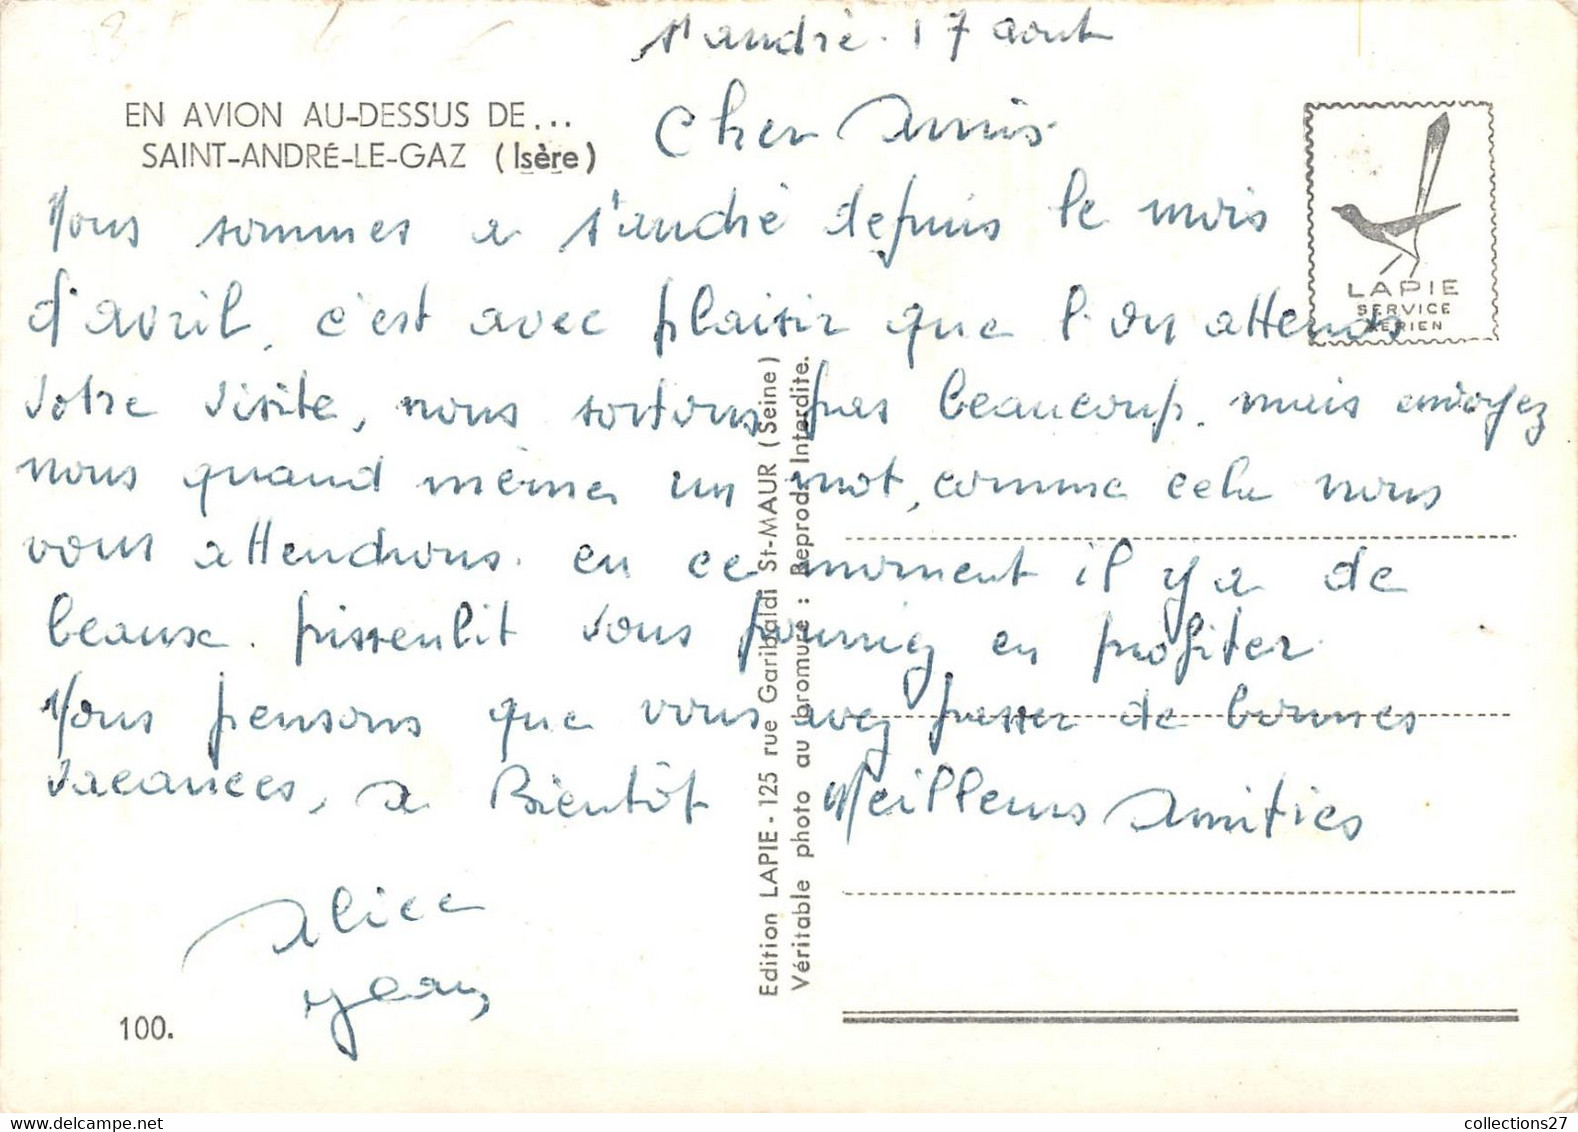 St andré. 17 aout
EN AVION AU-DESSUS DE...
SAINT-ANDRÉ-LE-GAZ (Isère)
Cher Amis.
Nous sommes a St andré depuis le mois
d'avril, c'est avec plaisir que l'on attends
votre visite, nous sortons pas beaucoup. mais envoyez
nous quand même un mot, comme cela nous
vous attendrons. en ce moment il y a de
beaux. pissenlit vous pourriez en profiter.
Nous pensons que vous avez passer de bonnes
vacances, a Bientôt Meilleurs Amities
Alice
jean
100.
Edition LAPIE - 125 rue Garibaldi St-MAUR (Seine)
Véritable photo au bromure : Reprod. Interdite.
LAPIE
SERVICE
AERIEN
collections27